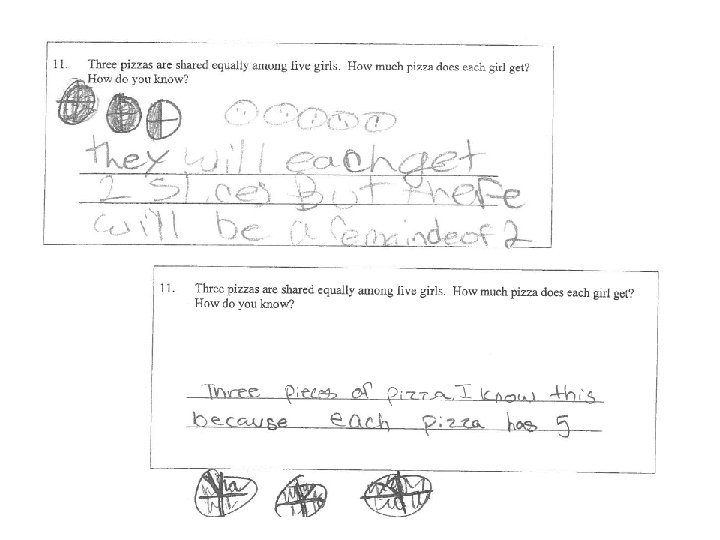 11. Three pizzas are shared equally among five girls. How much pizza does each girl get?
How do you know?
they will each get
2 slices But there
will be a remainde of 2
11. Three pizzas are shared equally among five girls. How much pizza does each girl get?
How do you know?
Three pieces of pizza. I know this
because each pizza has 5